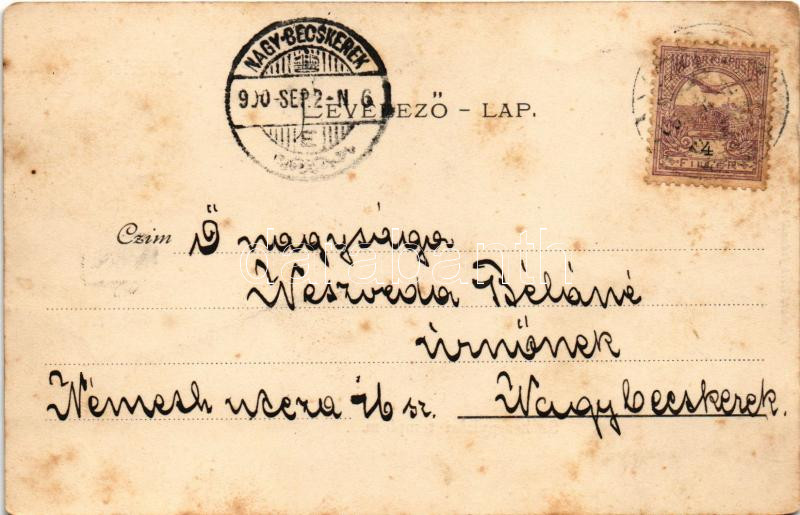 NAGY-BECSKEREK
900-SEP.2-N 6
E
LEVELEZŐ - LAP.
MAGYAR KIR. POSTA
4
FILLÉR
Czim Ő nagysága
Nészveda Béláné
úrnőnek
Németh utcza 76 sz. Nagybecskerek.
darabanth